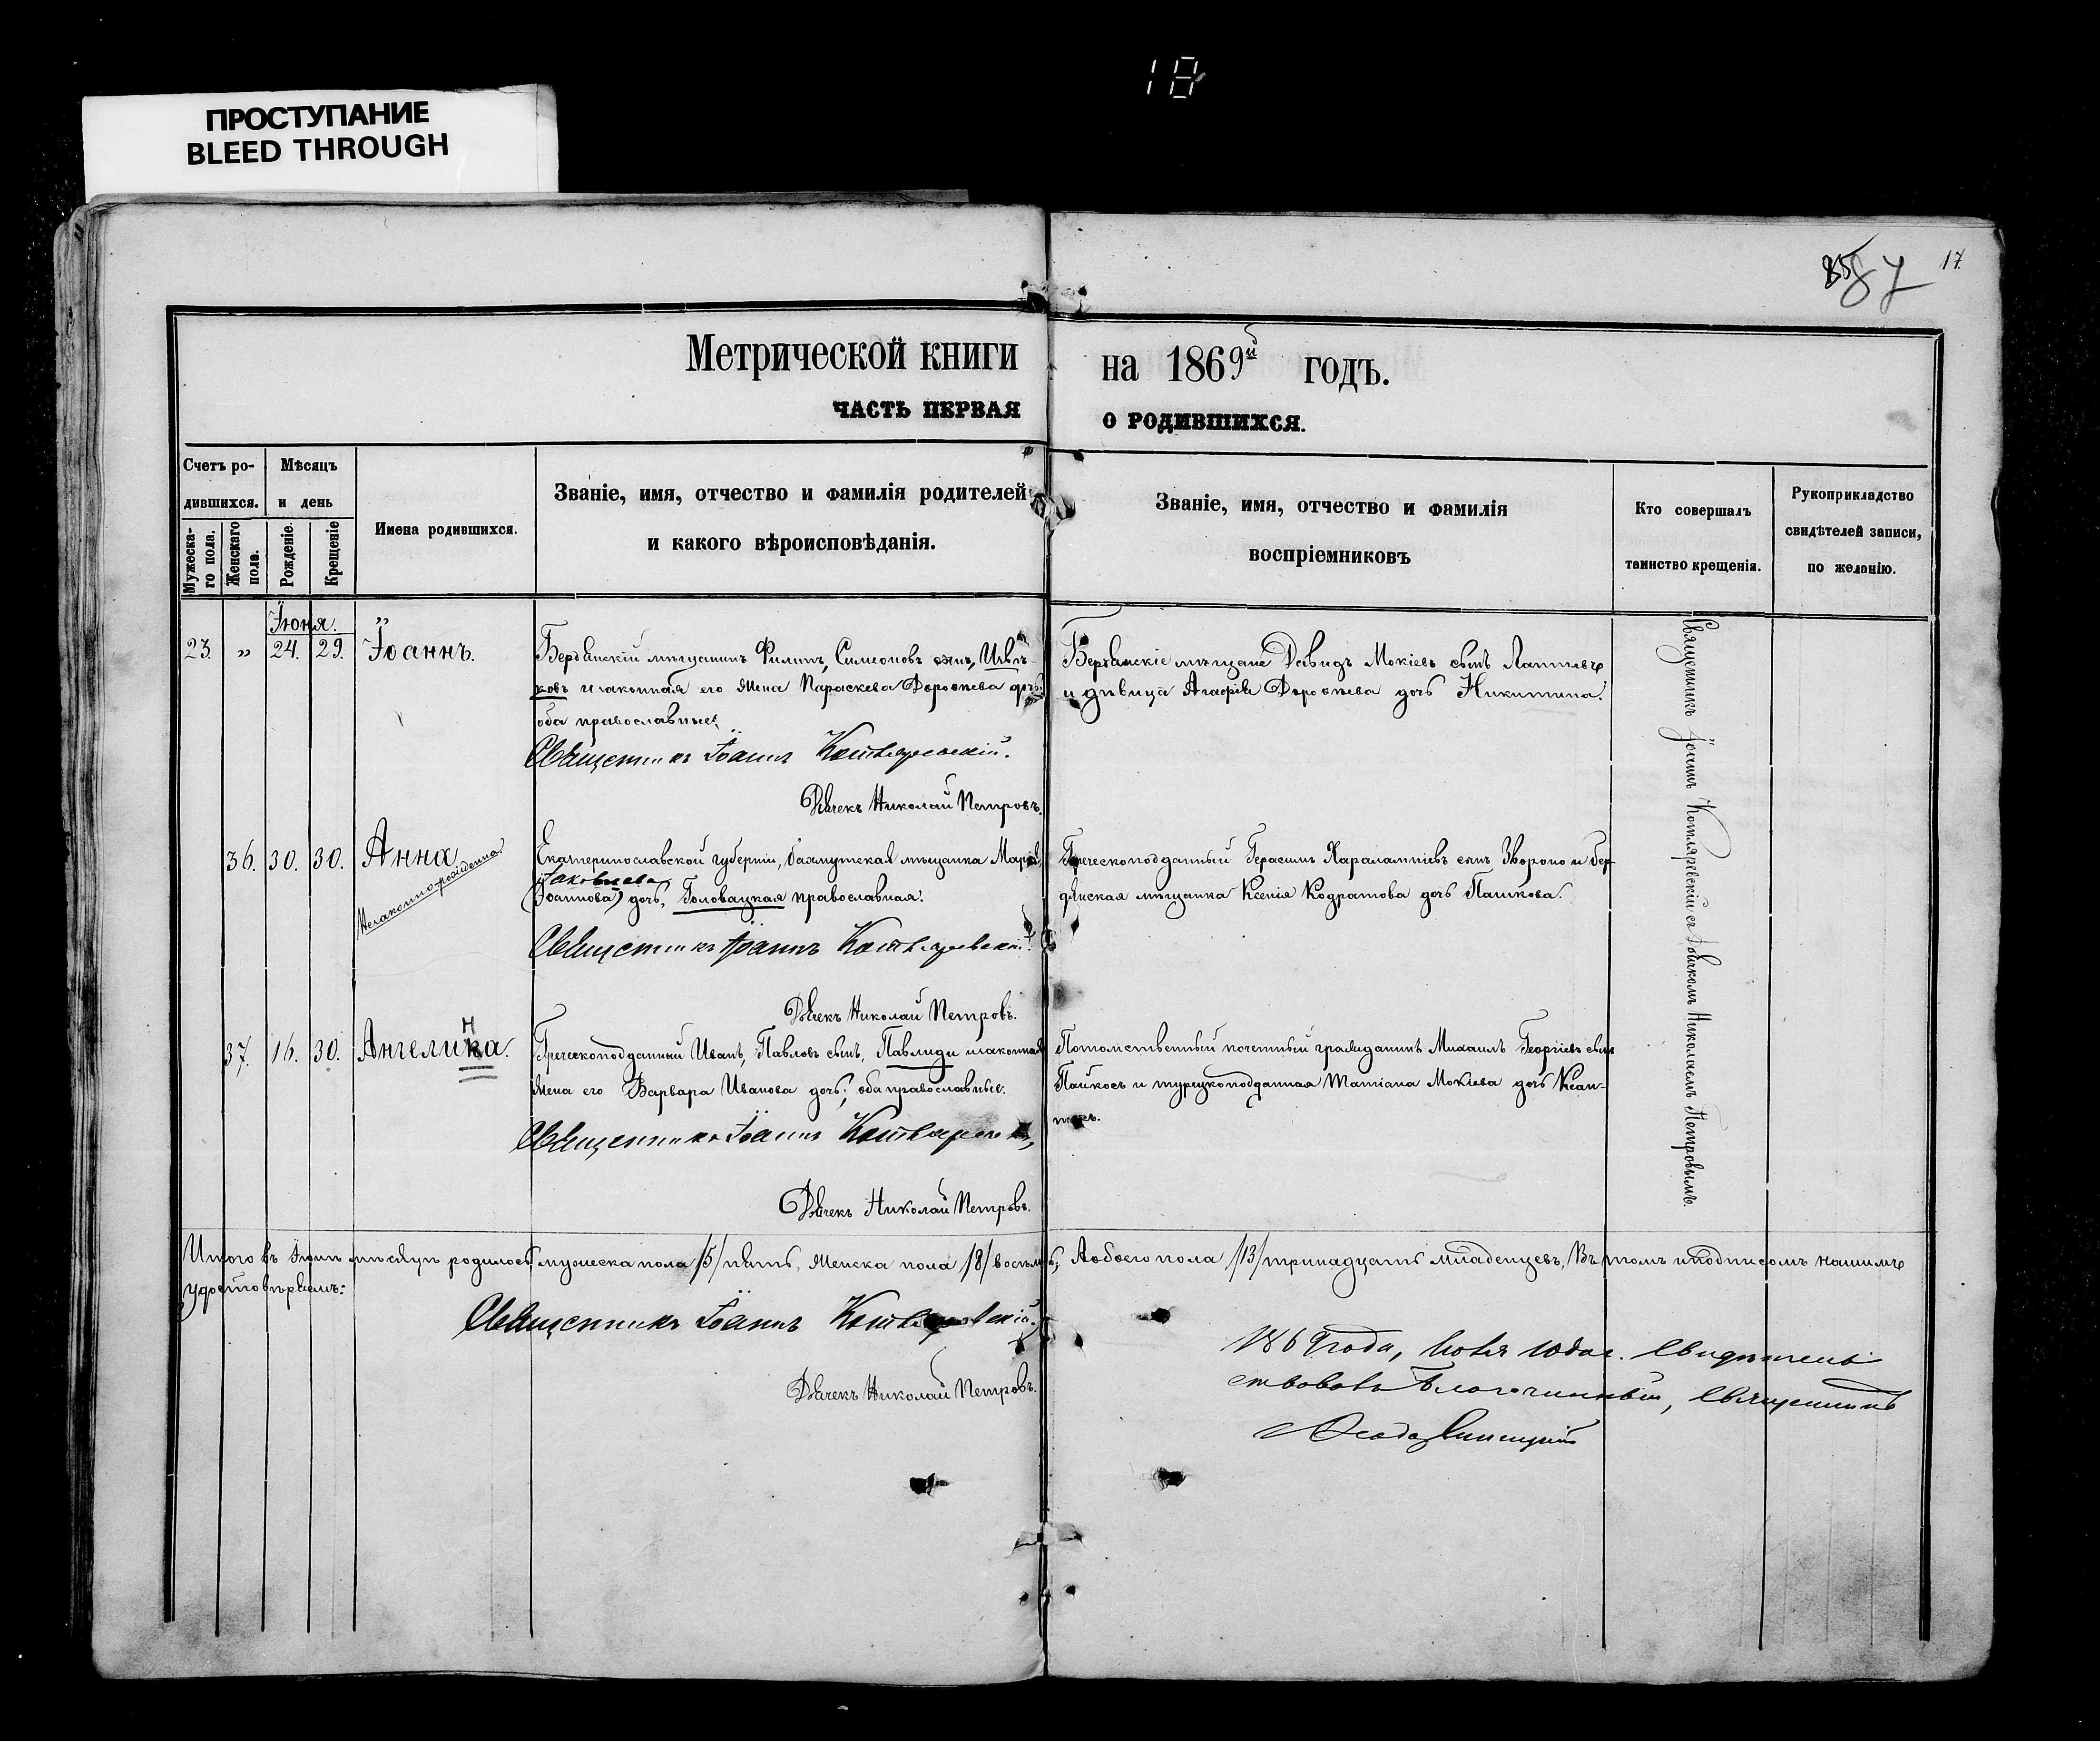 18
ПРОСТУПАНИЕ
BLEED THROUGH
87 17.
Метрической книги на 1869й годъ.
ЧАСТЬ ПЕРВАЯ О РОДИВШИХСЯ.
Счетъ ро-
дившихся.
Мужеска-
го пола.
Женскаго
пола.
Мѣсяцъ
и день
Рожденіе.
Крещеніе
Имена родившихся.
Званіе, имя, отчество и фамилія родителей
и какого вѣроисповѣданія.
Званіе, имя, отчество и фамилія
воспріемниковъ
Кто совершалъ
таинство крещенія.
Рукоприкладство
свидѣтелей записи,
по желанію.
Іюня.
23. „ 24. 29. Іоаннъ.
Бердянскій мѣщанинъ Филипъ, Симеоновъ сынъ,
ковъ и законная его жена Параскева Дороѳеева дочь;
оба православные.
Священникъ Іоаннъ Котляревскій.
Дьячекъ Николай Петровъ.
Бердянскіе мѣщане Давидъ Мокіевъ сынъ Лаптевъ
и дѣвица Агафія Дороѳеева дочь Никитина.
36. 30. 30. Анна
Незаконнорожденна
Екатеринославской губерніи, Бахмутская мѣщанка Марія,
Яковлева
(Іоаннова) дочь, Головацкая православная.
Священникъ Іоаннъ Котляревскій.
Дьячекъ Николай Петровъ.
Греческоподданный Герасимъ Харалампіевъ сынъ Звороно и Бер-
дянская мѣщанка Ксенія Кодратова дочь Пашкова.
37. 16. 30. Ангелина.
н
Греческоподданный Иванъ, Павловъ сынъ, Павлиди и законная
жена его Варвара Иванова дочь; оба православные.
Священникъ Іоаннъ
Дьячекъ Николай Петровъ.
Потомственный почетный гражданинъ Михаилъ Георгіевъ сынъ
Пайкосъ и турецкоподданная Татіана Мокіева дочь
Священникъ Іоаннъ Котляревскій съ Дьячкомъ Николаемъ Петровымъ.
Итого въ Іюнѣ мѣсяцѣ родилось мужеска пола /5/ пять, женска пола /8/ восемь, А обоего пола /13/ тринадцать младенцевъ, Въ томъ и подписомъ нашимъ
удостовѣряемъ:
Священникъ Іоаннъ Котляревскій.
Дьячекъ Николай Петровъ.
1869 года, Іюля 10 дня. Свидѣтель
ствовалъ Благочинный, Священникъ